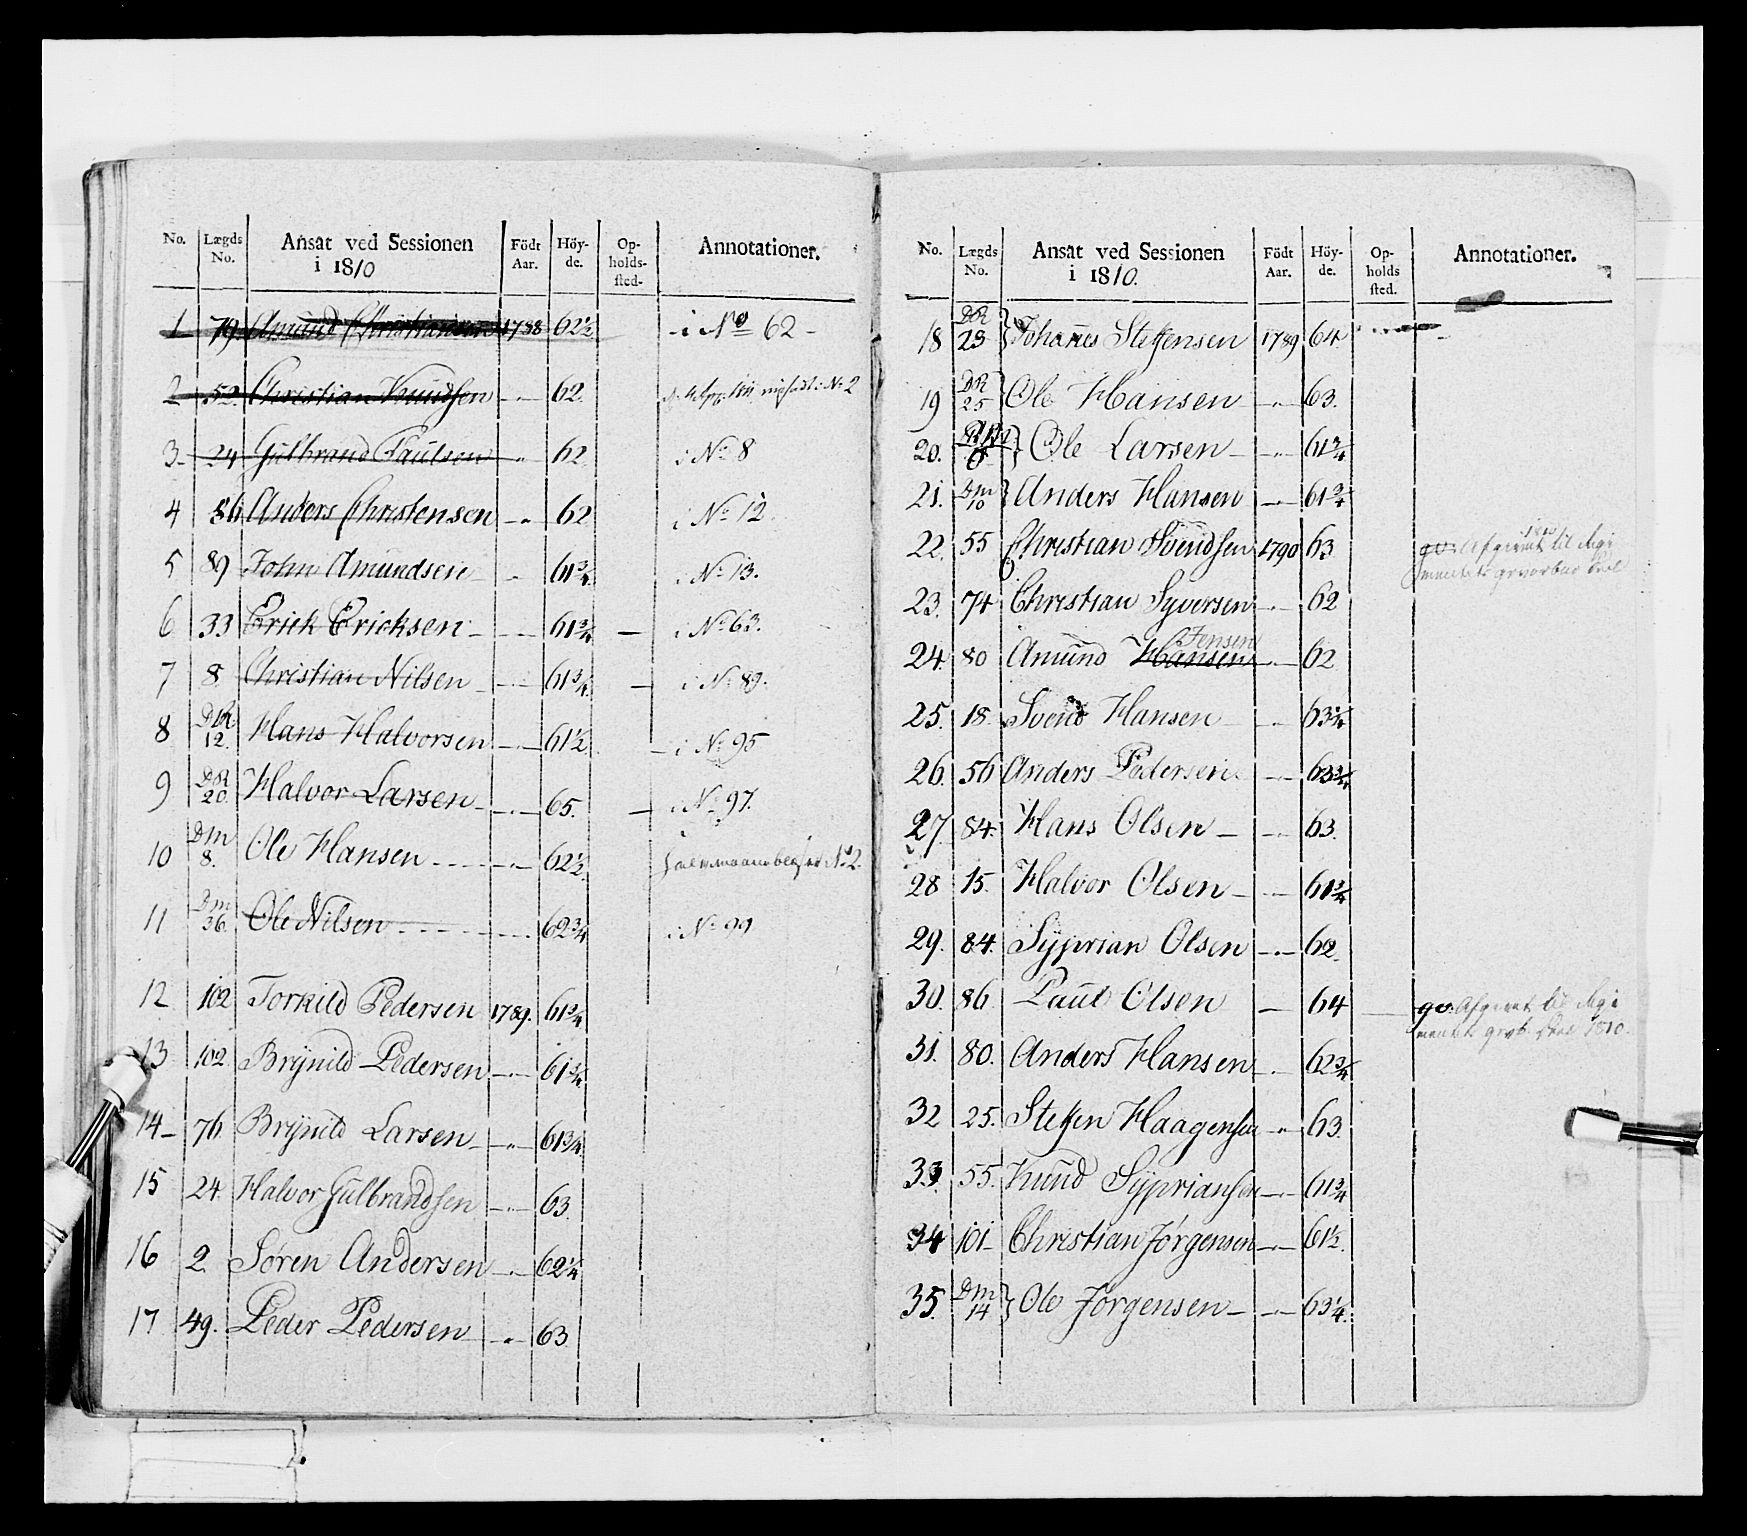 No. Lægds No. Ansat ved Sessionen i 1810 Födt Aar. Höy-de. Op-holds-sted. Annotationer.
1 79 Amund Christiansen 1788 62½ i No 62
2 52 Christian Knudsen 62 No 2
3 24 Gulbrand Paulsen 62 i No 8
4 86 Anders Christensen 62 i No 12
5 89 John Amundsen 61¾ i No 13.
6 33 Erick Ericksen 61¾ i No 63.
7 8 Christian Nilsen 61¾ i No 89.
8 DR 12. Hans Halvorsen 61½ i No 95
9 DR 20 Halvor Larsen 65. i No 97.
10 Dm 8. Ole Hansen 62½ No 2.
11 Dm 36. Ole Nilsen 62¾ i No 99
12 102 Torkild Pedersen 1789. 61¾
13 102. Brÿnild Pedersen 61¾
14 76 Brÿnild Larsen 61¾
15 24 Halvor Gulbrandsen 63
16 2 Sören Andersen 62¼
17 49. Peder Pedersen 63
No. Lægds No. Ansat ved Sessionen i 1810. Födt Aar. Höy-de. Op-holds sted. Annotationer.
18 DR 23 Johannes Steffensen 1789 64
19 DR 25 Ole Hansen 63
20. Ole Larsen 61¾
21. Dm 10 Anders Hansen 61¾
22. 55 Christian Svendsen 1790 63 Afgivet til Regi
23. 74 Christian Syversen 62
24. 80 Amund Hansen Jensen 62
25. 18 Svend Hansen 63¼
26. 56 Anders Pedersen 63¾
27 84 Hans Olsen 63.
28 15. Halvor Olsen 61¾
29. 84. Sÿprian Olsen 62
30. 86 Paul Olsen 64 Afgivet til Regi
mentets 1810.
31. 80. Anders Hansen 62¾
32 25. Steffen Haagensen 63
33. 55. Knud Sÿpriansen 61¾
34 101 Christian Jörgensen 61½
35. Dm 14 Ole Jörgensen 63¼